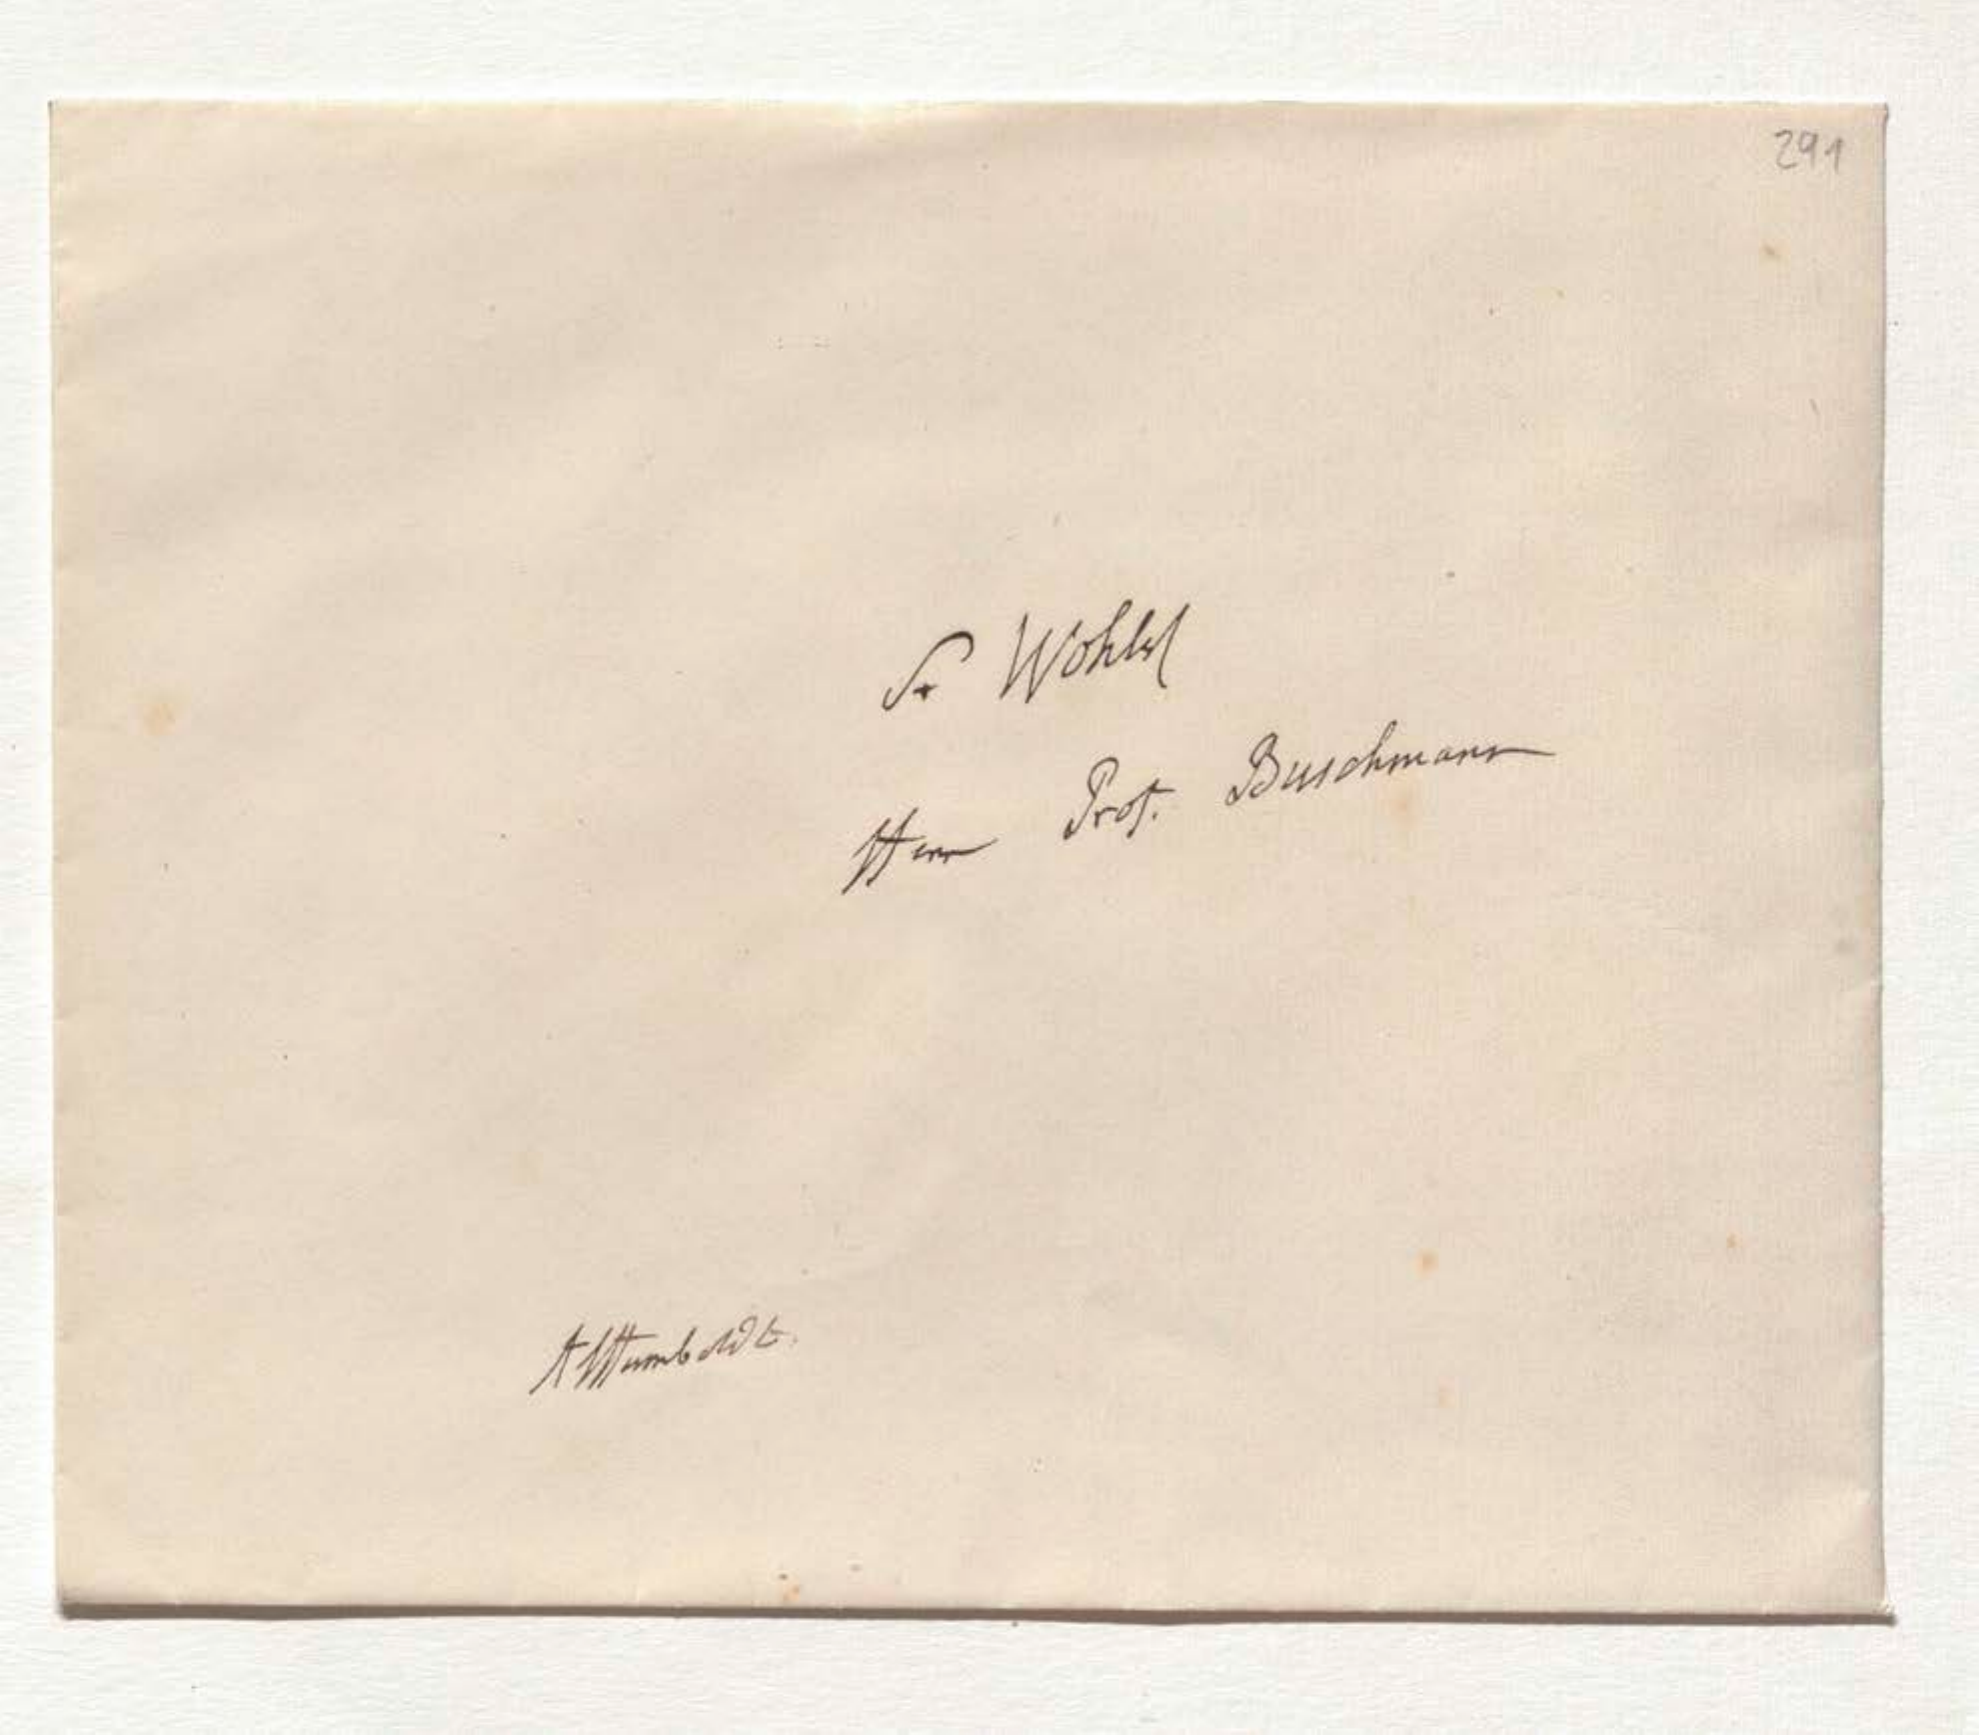 291
Sr Wohlg
Herr Prof. Buschmann
AHumboldt.